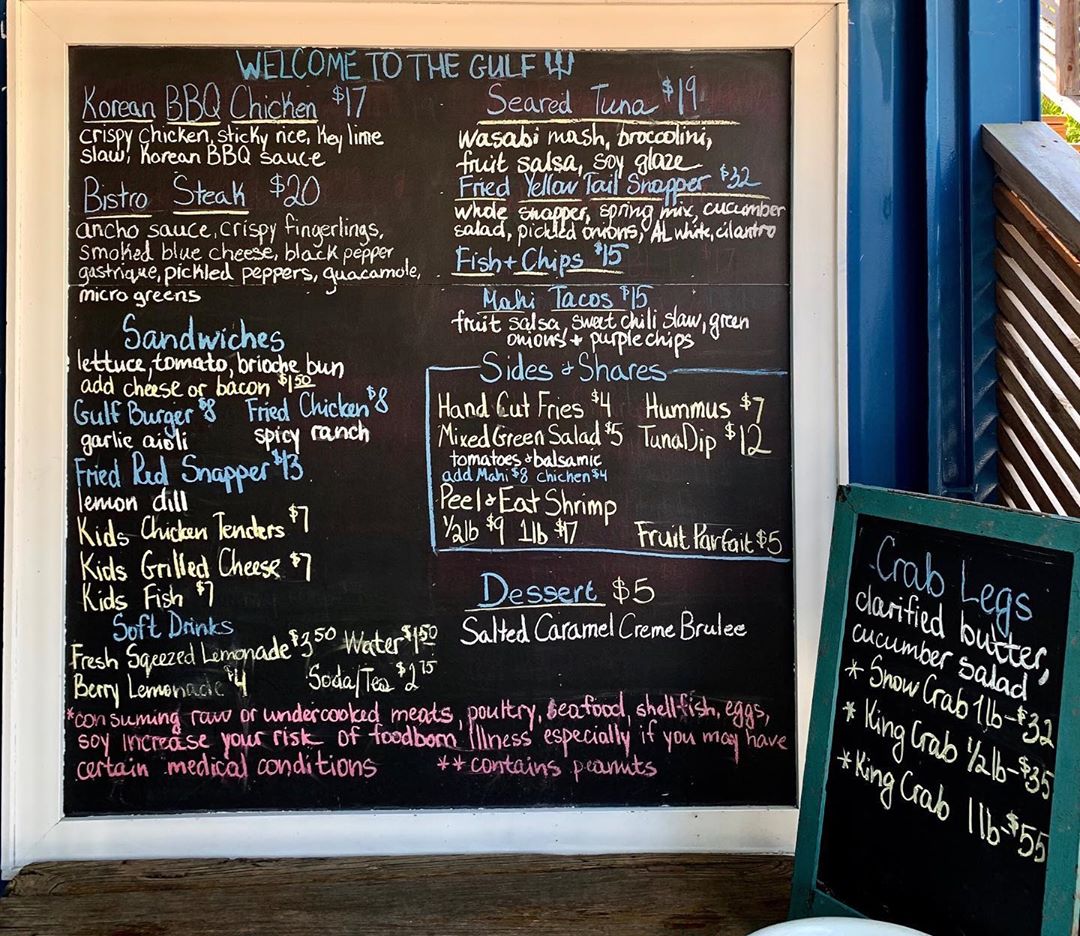 WELCOME TO THE GULF
Korean BBQ Chicken $17
crispy chicken, sticky rice, Key lime
slaw, Korean BBQ sauce
Bistro Steak $20
ancho sauce, crispy fingerlings,
smoked blue cheese, black pepper
gastrique, pickled peppers, guacamole,
micro greens
Sandwiches
lettuce, tomato, brioche bun
add cheese or bacon $1.50
Gulf Burger $8 Fried Chicken $8
garlic aioli spicy ranch
Fried Red Snapper $13
lemon dill
Kids Chicken Tenders $7
Kids Grilled Cheese $7
Kids Fish $7
Soft Drinks
Fresh Sqeezed Lemonade $3.50 Water $1.50
Berry Lemonade $4 Soda/Tea $2.75
Seared Tuna $19
wasabi mash, broccolini,
fruit salsa, soy glaze
Fried Yellow Tail Snapper $32
whole snapper, spring mix, cucumber
salad, pickled onions, AL white, cilantro
Fish + Chips $15
Mahi Tacos $15
fruit salsa, sweet chili slaw, green
onions + purple chips
Sides + Shares
Hand Cut Fries $4 Hummus $7
Mixed Green Salad $5 Tuna Dip $12
tomatoes + balsamic
add Mahi $8 chicken $4
Peel & Eat Shrimp
1/2lb $9 1lb $17 Fruit Parfait $5
Dessert $5
Salted Caramel Creme Brulee
*consuming raw or undercooked meats, poultry, seafood, shellfish, eggs,
soy increase your risk of foodborn illness especially if you may have
certain medical conditions **contains peanuts
Crab Legs
clarified butter,
cucumber salad
* Snow Crab 1lb-$32
* King Crab 1/2lb-$35
* King Crab 1lb-$55